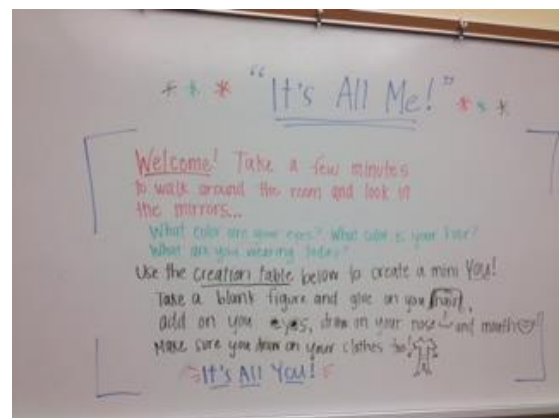 "It's All Me!"
Welcome! Take a few minutes
to walk around the room and look in
the mirrors...
What color are your eyes? What color is your hair?
What are you wearing today?
Use the creation table below to create a mini You!
Take a blank figure and glue on you hair,
add on you eyes, draw on your nose and mouth
Make sure you draw on your clothes too!
It's All You!